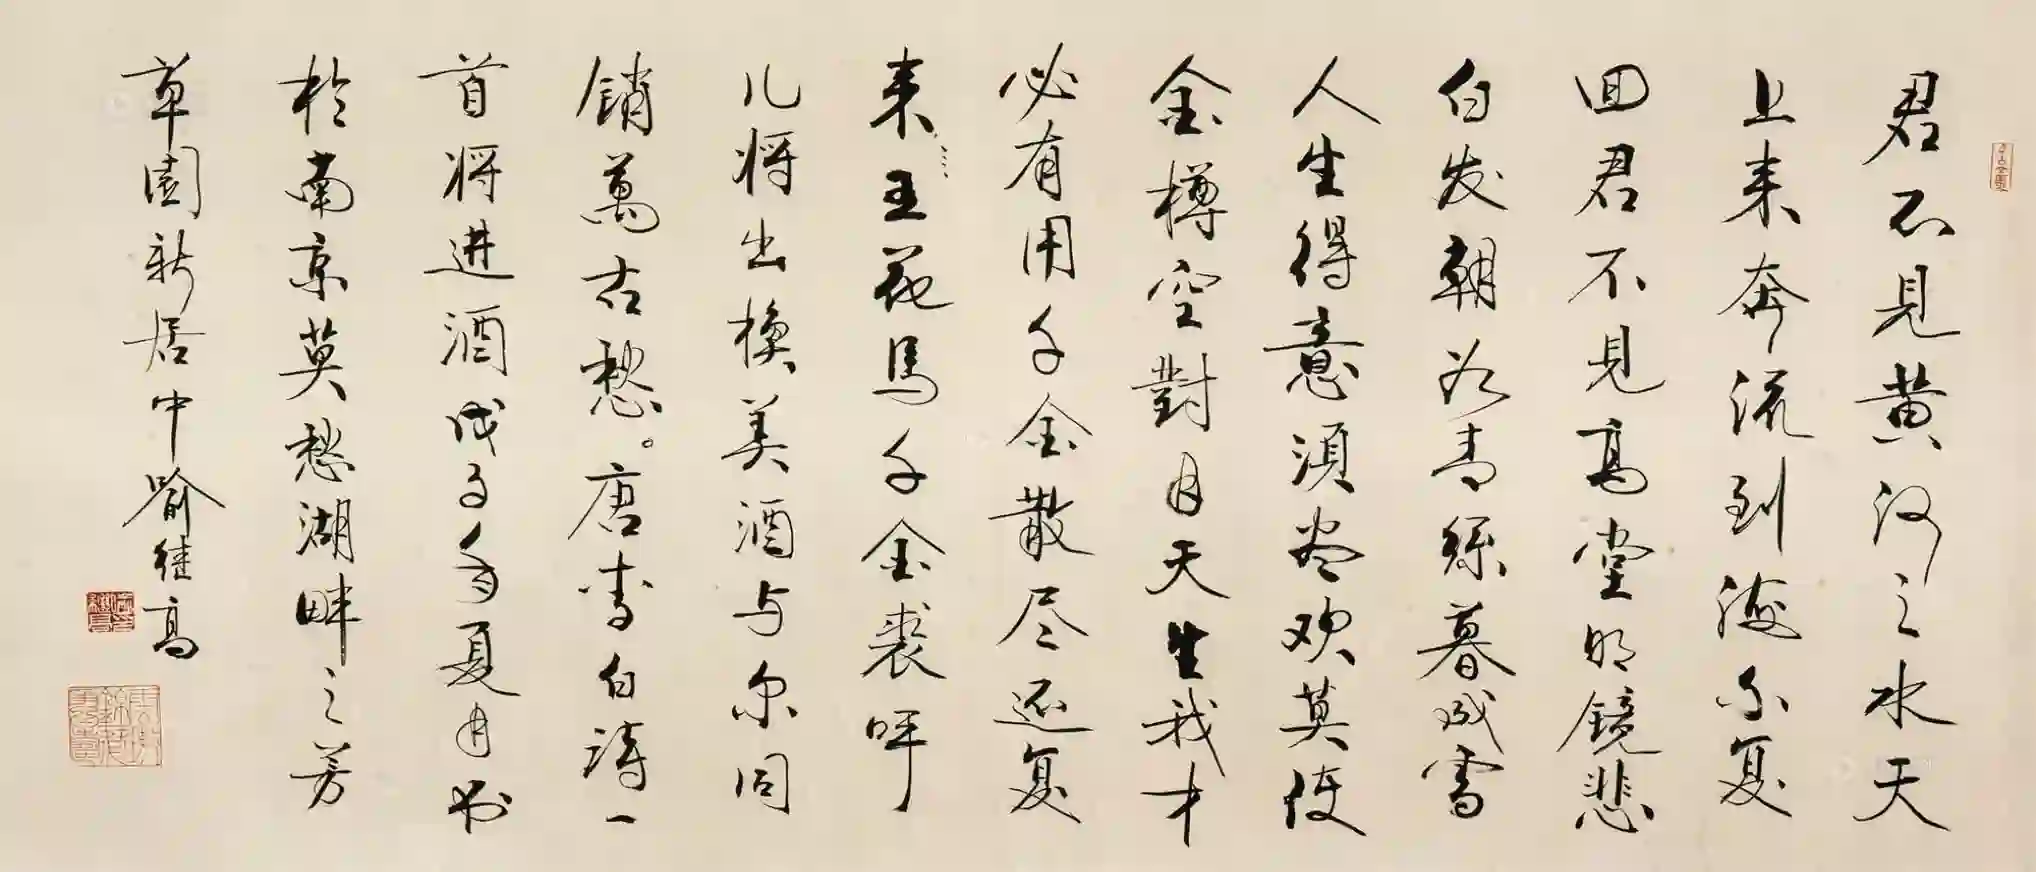 君不见黄河之水天
上来奔流到海不复
回君不见高堂明镜悲
白发朝如青丝暮成雪
人生得意须尽欢莫使
金樽空對月天生我才
必有用千金散尽还复
来五花马千金裘呼
儿将出换美酒与尔同
销萬古愁。唐李白诗一
首将进酒戊子年夏月书
于南京莫愁湖畔之芳
草園新居中喻继高